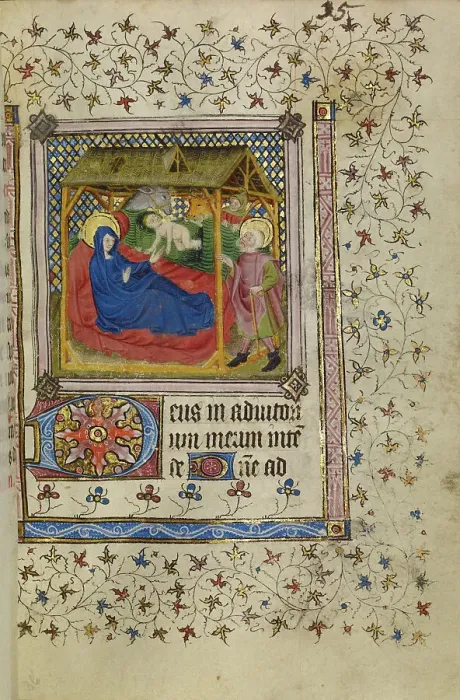 35
Deus in adiutori
um meum intē
de Dñe ad